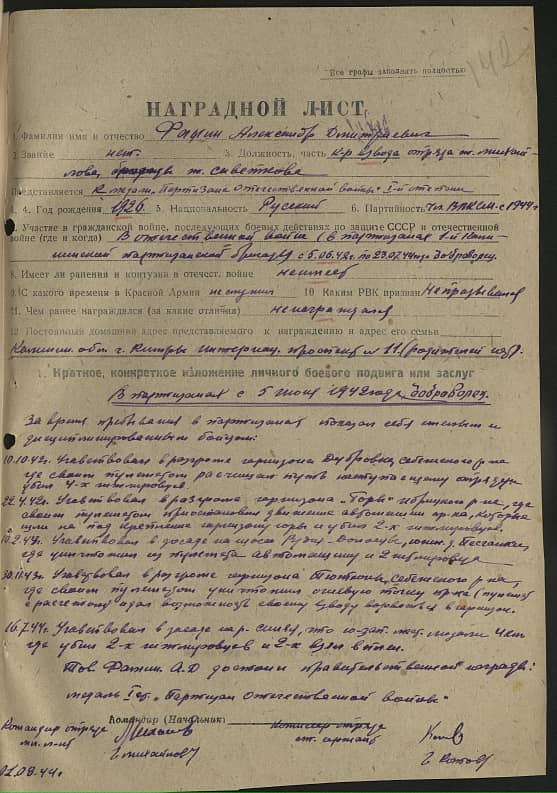 142
Все графы заполнять полностью
НАГРАДНОЙ ЛИСТ
1. Фамилия имя и отчество Александр Дмитриевич
2. Звание нет. 3. Должность, часть к-р взвода отряда т. Михай-
лова, бригады т.
Представляется к медали „Партизана Отечественной войны" I-й степени
4. Год рождения 1926 5. Национальность Русский 6. Партийность чл. ВЛКСМ с 1944г
7. Участие в гражданской войне, последующих боевых действиях по защите СССР и отечественной
войне (где и когда) В отечественной войне (в партизанах 1-й Кали-
нинской партизанской бригады с 5.06.42г. по 23.07.44г) Доброволец.
8. Имеет ли ранения и контузии в отечест. войне не имеет
9. С какого времени в Красной Армии не служил 10. Каким РВК призван Не призывался
11. Чем ранее награждался (за какие отличия) не награждался
12. Постоянный домашний адрес представляемого к награждению и адрес его семьи
Калинин. обл. г. Кимры проспект 11.
Краткое, конкретное изложение личного боевого подвига или заслуг
В партизанах с 5 июня 1942 года, Доброволец.
За время пребывания в партизанах показал себя смелым и
дисциплинированным бойцом:
10.10.42г. Участвовал в разгроме гарнизона Дубровка, Себежского р-на
где своим пулеметом расчищал путь наступающему отряду
убил 4-х гитлеровцев.
Участвовал в разгроме гарнизона , где
своим пулеметом приостановил движение автомашин пр-ка, которые
шли на подкрепление гарнизону и убил 2-х гитлеровцев.
Участвовал в засаде на шоссе
где уничтожил из пулемета автомашину и 2 гитлеровца
Участвовал в разгроме гарнизона Себежского р-на,
где своим пулеметом уничтожил огневую точку пр-ка (пулемет
с расчетом) дал возможность своему взводу ворваться в гарнизон.
16.7.44г. Участвовал в засаде
где убил 2-х гитлеровцев и 2-х взял в плен.
Тов. А.Д. достоин правительственной награды:
медаль I ст. „Партизан Отечественной войны"
Командир (Начальник)
Командир отряда
мл. л-нт
Михайлов
Комиссар отряда
ст. сержант